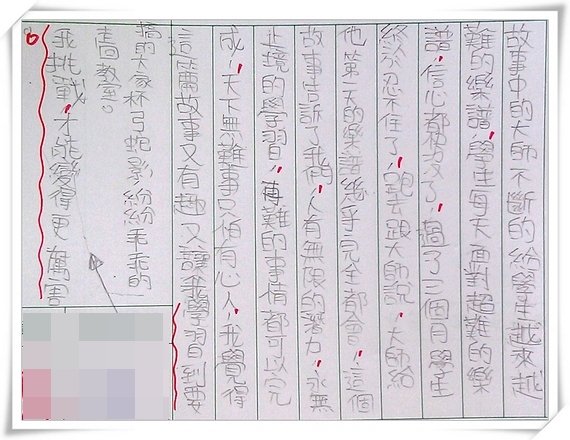 故事中的大師不斷的給學生越來越
難的樂譜,學生每天面對超難的樂
譜,信心都沒了,過了三個月學生
終於忍不住了,跑去跟大師說,大師給
他第一天的樂譜幾乎完全都會,這個
故事告訴了我們,人有無限的潛力,永無
止境的學習,再難的事情都可以完
成,天下無難事只怕有心人,我覺得
這篇故事又有趣又讓我學習到要
搞的大家杯弓蛇影紛紛乖乖的
教室。
我挑戰,才能變得更厲害